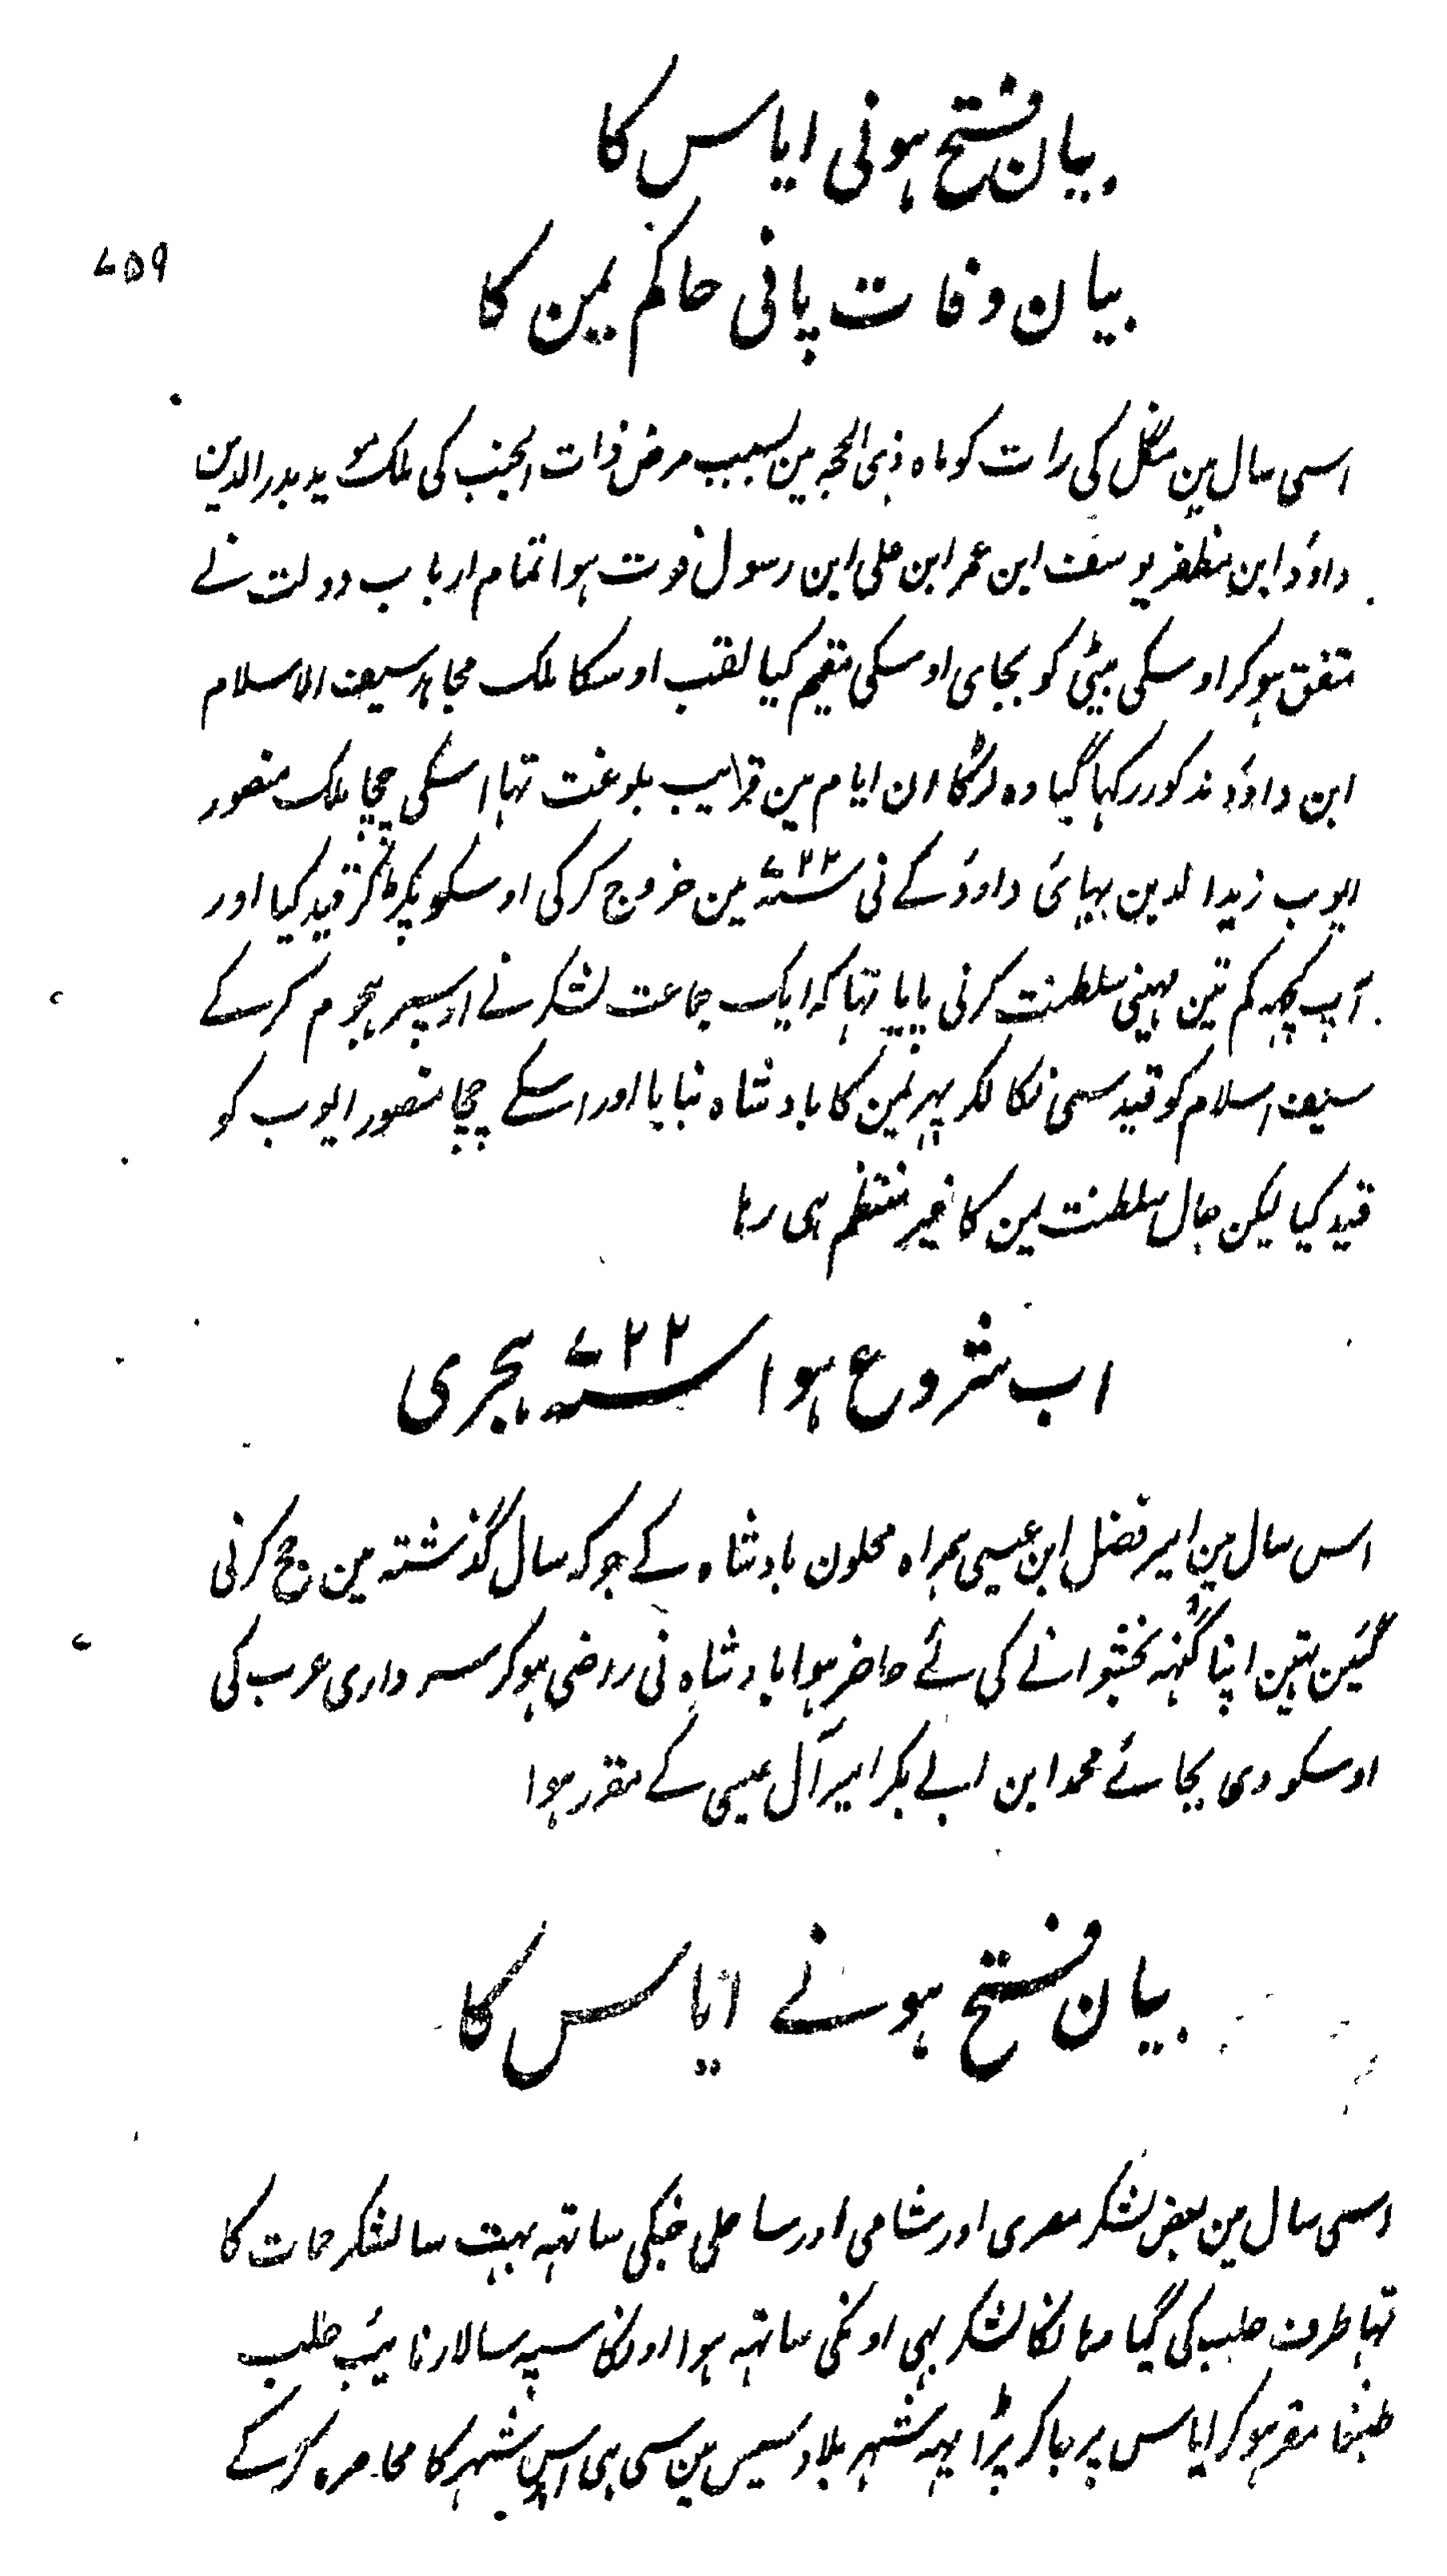 بیان فتح ہونی ایاس کا
۷۵۹
بیان وفات پانی حاکم یمن کا
اسی سال مین منگل کی رات کو ماہ ذی الحجہ مین بسبب مرض ذات الجنب کی ملک موید بدر الدین
داوٗد ابن مظفر یوسف ابن عمر ابن علی ابن رسول فوت ہوا تمام ارباب دولت نے
متفق ہوکر اوسکی بیٹی کو بجای اوسکی مقیم کیا لقب اوسکا ملک مجاہد سیف الاسلام
ابن داوٗد مذکور رکہا گیا وہ لڑکا ان ایام مین قرایب بلوغت تہا اسکی چچا ملک منصور
ایوب زید الدین بہائی داوٗد کے نی ۷۲۲سنہ مین خروج کرکی اوسکو پکڑکر قید کیا اور
آپ کچہہ کم تین مہینی سلطنت کرنی پایا تہا کہ ایک جماعت لشکر نے اوسپر ہجوم کرکے
سیف اسلام کو قید سی نکالکر پہر یمن کا بادشاہ بنایا اور اسکے چچا منصور ایوب کو
قید کیا لیکن حال سلطنت یمن کا غیر منتظم ہی رہا
اب شروع ہوا ۷۲۲سنہ ہجری
اس سال مین امیر فضل ابن عیسی ہمراہ محلون بادشاہ کے جوکہ سال گذشتہ مین حج کرنی
گئین تہین اپنا گنہہ بخشوانے کی لئے حاضر ہوا بادشاہ نی راضی ہوکر سرداری عرب کی
اوسکو دی بجائے محمد ابن ابے بکر امیر آل عیسی کے مقرر ہوا
بیان فتح ہونے ایاس کا
اسی سال مین بعض لشکر مصری اور شامی اور ساحلی جنکی ساتہہ بہت سا لشکر حمات کا
تہا طرف حلب کی گیا وہانکا لشکر بہی اونکی ساتہہ ہوا اور انکا سپہ سالار نایٔب حلب
مقرر ہوکر ایاس پر جاکر پڑا یہہ شہر بلاد سیس مین سی ہی اس شہر کا محاصرہ کرکے